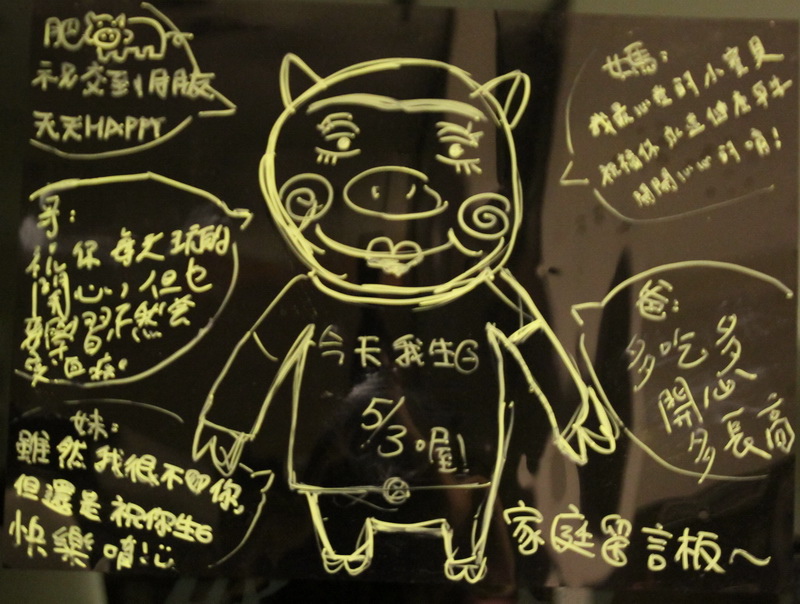 肥
祝你交到月月友
天天HAPPY
媽:
我最心愛的小寶貝
祝福你永遠健康平安
開開心心的唷!
哥:
祝你每天玩的
開心,但也
要學習不然會
變白痴
爸:
多吃多
開心
多長高
今天我生日
5/3喔!
妹:
雖然我很不♥你,
但還是祝你生日
快樂唷!
家庭留言板~